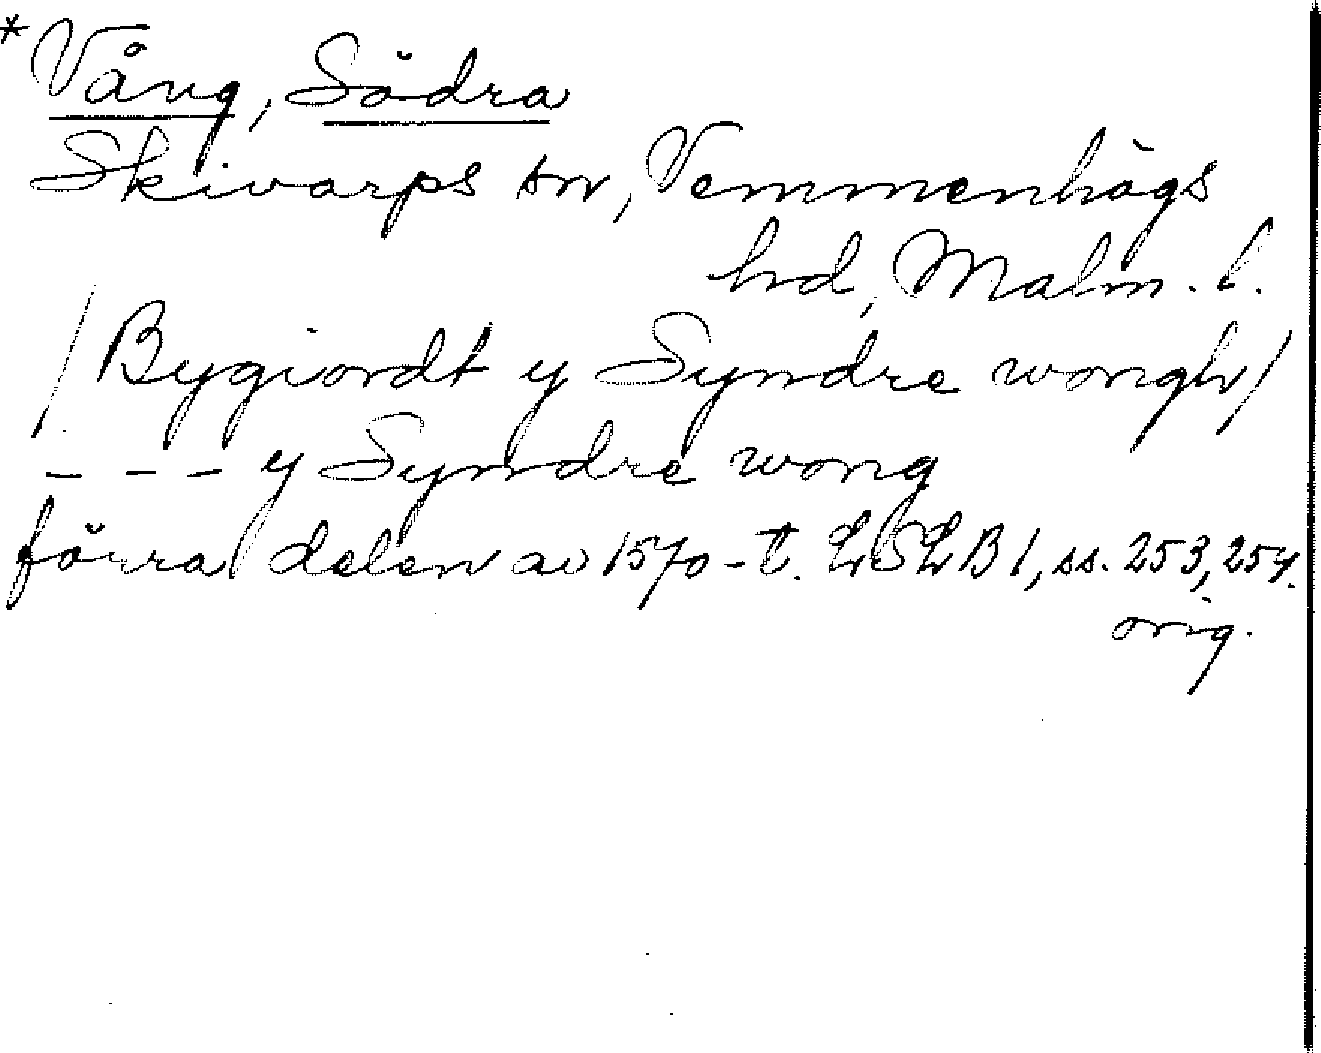 *Vång, Södra
Skivarps sn, Vemmenhögs
hd, Malm. l.
/Bygiordt y Syndre wongh/
- - - y Syndre wong
förra delen av 1570-t. LSLB 1, ss. 253, 254.
orig.